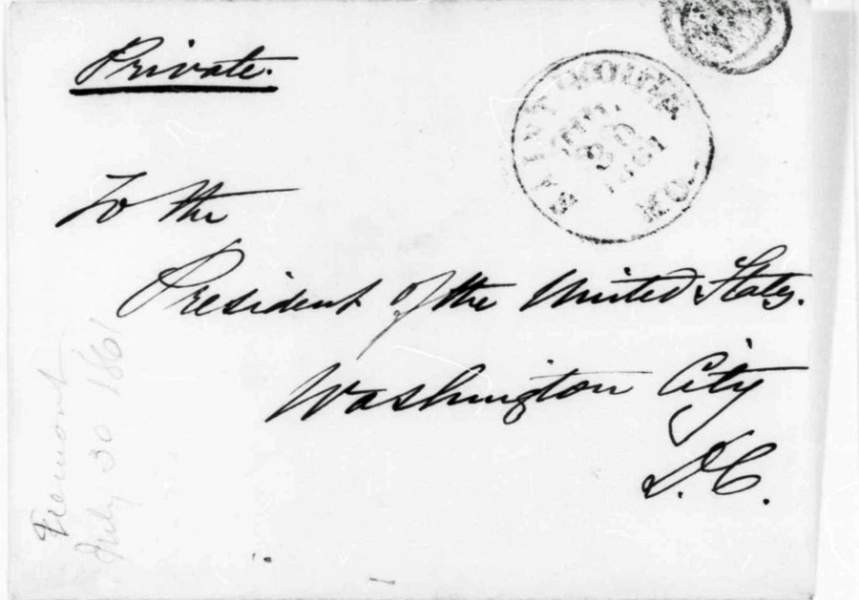 Private.
SAINT LOUIS
JUL
30
1861
MO.
To the
President of the United States.
Washington City
D.C.
Fremont
July 30 1861